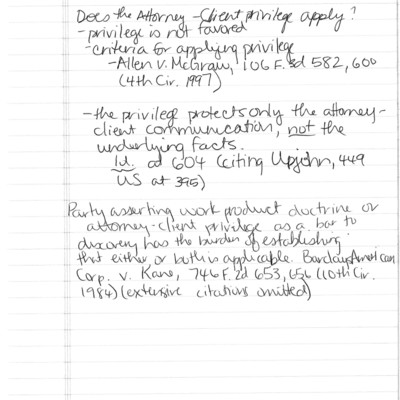 Does the Attorney-Client privilege apply?
- privilege is not favored
- criteria for applying privilege
- Allen v. McGraw, 106 F.3d 582, 600
(4th Cir. 1997)
- the privilege protects only the attorney-
client communication, not the
underlying facts.
Id. at 604 (citing Upjohn, 449
US at 395)
Party asserting work product doctrine or
attorney-client privilege as a bar to
discovery has the burden of establishing
that either or both is applicable. Barclays American
Corp. v. Kane, 746 F.2d 653, 656 (10th Cir.
1984) (extensive citations omitted)